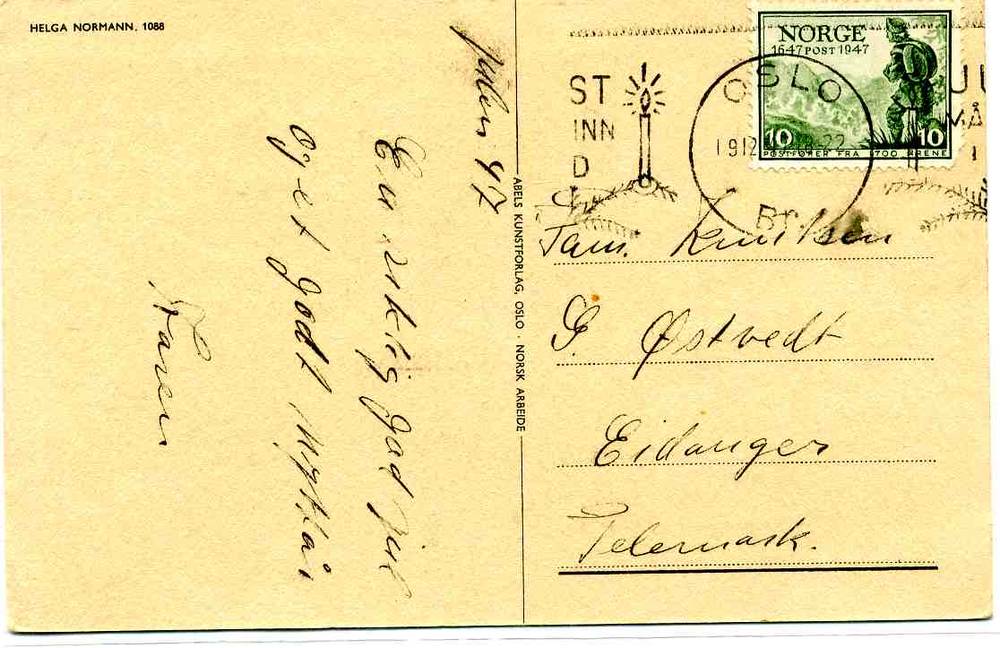 HELGA NORMANN, 1088
Julen 47
En riktig god jul
og et godt nyttår
Karen
ABELS KUNSTFORLAG, OSLO · NORSK ARBEIDE
NORGE
1647 POST 1947
10 10
POSTFØRER FRA 1700 ÅRENE
OSLO
1912
22
Br.
ST
INN
D
JU
MÅ
Fam. Knutsen
G. Østvedt
Eidanger
Telemark.